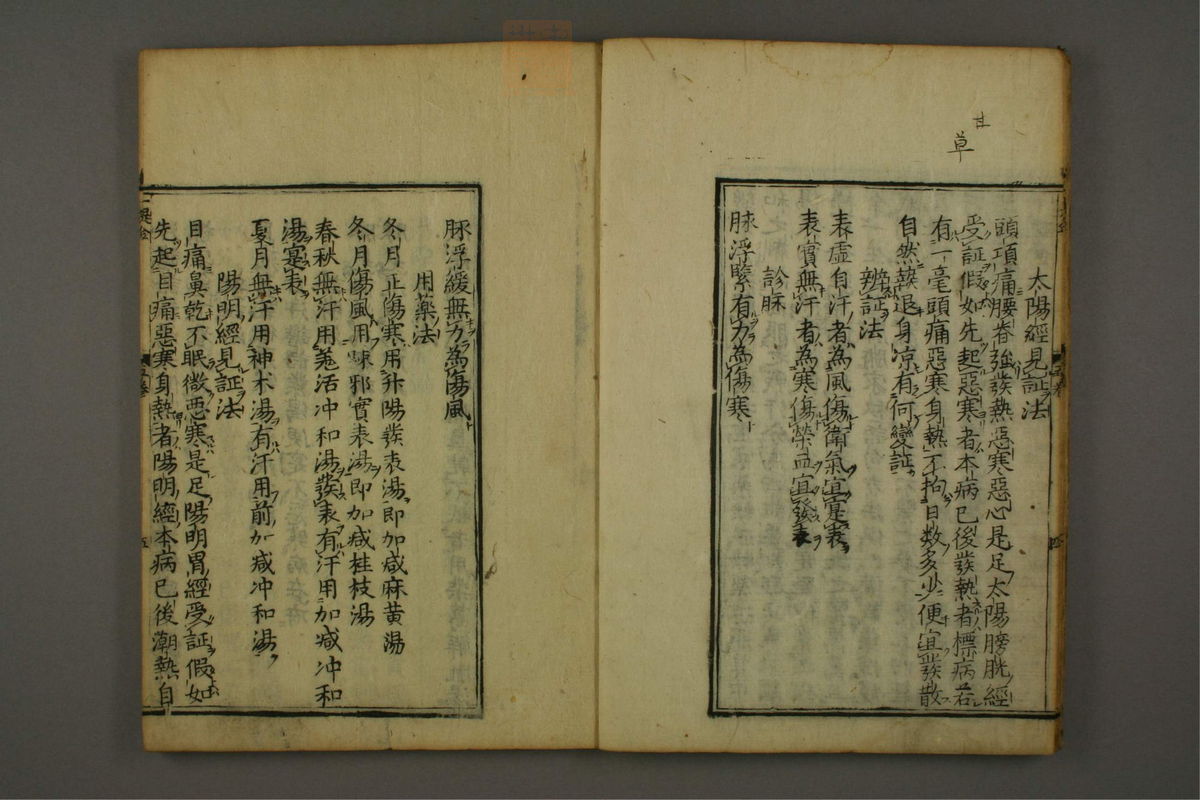 甘
草
太陽經見証法
頭項痛腰脊強發熱惡寒惡心是足太陽膀胱經
受証假如先起惡寒者本病已後發熱者標病若
有一毫頭痛惡寒身熱不拘日数多少便宜發散
自然熱退身凉有何變証
辨証法
表虚自汗者為風傷衛氣宜實表
表實無汗者為寒傷榮血宜發表
診脉
脉浮緊有力為傷寒
脉浮緩無力為傷風
用薬法
冬月正傷寒用升陽發表湯即加减麻黄湯
冬月傷風用疎邪實表湯即加减桂枝湯
春秋無汗用羗活冲和湯發表有汗用加减冲和
湯寔表
夏月無汗用神术湯有汗用前加减冲和湯
陽明經見証法
目痛鼻乾不眠微惡寒是足陽明胃經受証假如
先起目痛惡寒身熱者陽明經本病已後潮熱自